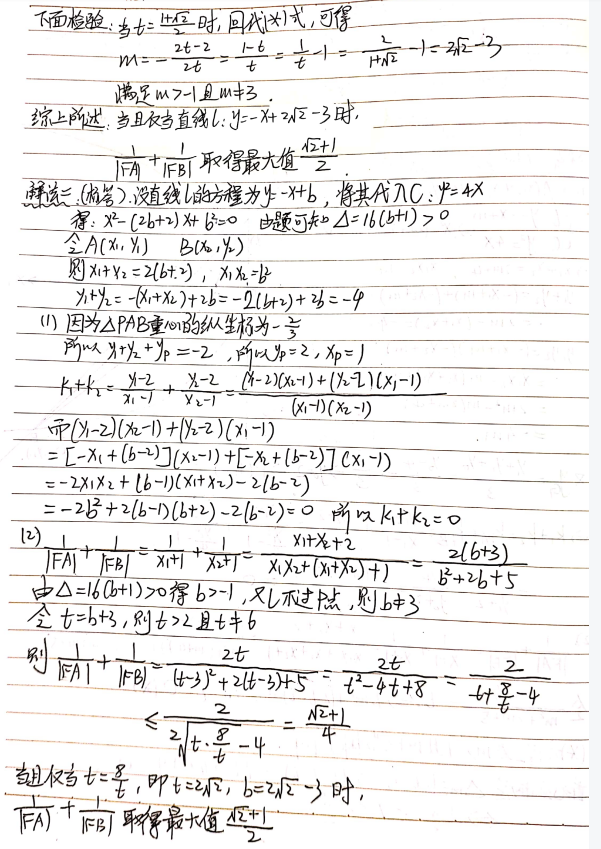 下面检验:当t=\frac{1+\sqrt{2}}{2}时,回代(*)式,可得
m=-\frac{2t-2}{2t}=\frac{1-t}{t}=\frac{1}{t}-1=\frac{2}{1+\sqrt{2}}-1=2\sqrt{2}-3
满足m>-1且m≠3.
综上所述:当且仅当直线l:y=-x+2\sqrt{2}-3时,
\frac{1}{|FA|}+\frac{1}{|FB|}取得最大值\frac{\sqrt{2}+1}{2}.
解法二:(相若).设直线l的方程为y=-x+b,将其代入C:y²=4x
得:x²-(2b+2)x+b²=0 由题可知Δ=16(b+1)>0
令A(x₁,y₁) B(x₂,y₂)
则x₁+x₂=2(b+2),x₁x₂=b²
y₁+y₂=-(x₁+x₂)+2b=-2(b+2)+2b=-4
(1)因为△PAB重心的纵坐标为-\frac{2}{3}
所以y₁+y₂+y_P=-2,所以y_P=2,x_P=1
k₁+k₂=\frac{y₁-2}{x₁-1}+\frac{y₂-2}{x₂-1}=\frac{(y₁-2)(x₂-1)+(y₂-2)(x₁-1)}{(x₁-1)(x₂-1)}
而(y₁-2)(x₂-1)+(y₂-2)(x₁-1)
=[-x₁+(b-2)](x₂-1)+[-x₂+(b-2)](x₁-1)
=-2x₁x₂+(b-1)(x₁+x₂)-2(b-2)
=-2b²+2(b-1)(b+2)-2(b-2)=0 所以k₁+k₂=0
(2)\frac{1}{|FA|}+\frac{1}{|FB|}=\frac{1}{x₁+1}+\frac{1}{x₂+1}=\frac{x₁+x₂+2}{x₁x₂+(x₁+x₂)+1}=\frac{2(b+3)}{b²+2b+5}
由Δ=16(b+1)>0得b>-1,又l不过P点,则b≠3
令t=b+3,则t>2且t≠6
则\frac{1}{|FA|}+\frac{1}{|FB|}=\frac{2t}{(t-3)²+2(t-3)+5}=\frac{2t}{t²-4t+8}=\frac{2}{t+\frac{8}{t}-4}
≤\frac{2}{2\sqrt{t·\frac{8}{t}}-4}=\frac{\sqrt{2}+1}{4}
当且仅当t=\frac{8}{t},即t=2\sqrt{2},b=2\sqrt{2}-3时,
\frac{1}{|FA|}+\frac{1}{|FB|}取得最大值\frac{\sqrt{2}+1}{2}